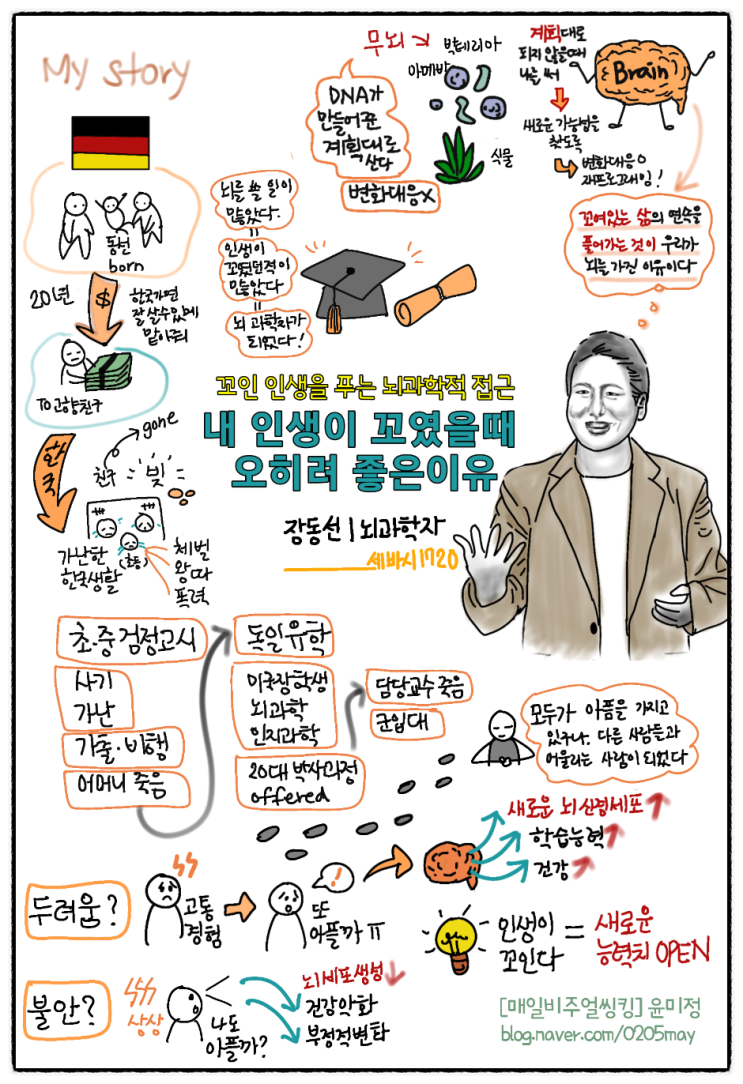 My story
동선
born
20년
$
한국가면
잘 살수있게
맡아줘
To 고향친구
한국
친구
gone
빚
가난한
한국생활
(초등)
체벌
왕따
폭력
무뇌
박테리아
아메바
식물
DNA가
만들어준
계획대로
산다
변화대응X
계획대로
되지 않을때
뇌를 써
Brain
새로운 가능성을
찾도록
변화대응O
재프로그래밍!
꼬여있는 삶의 연속을
풀어가는 것이 우리가
뇌를 가진 이유이다
뇌를 쓸 일이
많았다.
=
인생이
꼬였던적이
많았다
=
뇌 과학자가
되었다!
꼬인 인생을 푸는 뇌과학적 접근
내 인생이 꼬였을때
오히려 좋은이유
장동선 | 뇌과학자
세바시 1720
초.중 검정고시
사기
가난
가출·비행
어머니 죽음
독일유학
미국장학생
뇌과학
인지과학
20대 박사과정
offered
담당교수 죽음
군입대
모두가 아픔을 가지고
있구나. 다른 사람들과
어울리는 사람이 되었다
두려움?
고통
경험
!
또
아플까 ㅠ
새로운 뇌 신경세포
학습능력
건강
인생이
꼬인다
=
새로운
능력치 OPEN
불안?
상상
나도
아플까?
뇌세포생성
건강악화
부정적변화
[매일비주얼씽킹] 윤미정
blog.naver.com/0205may